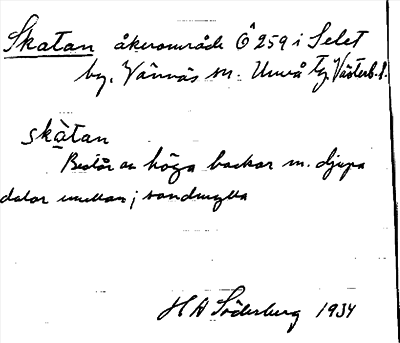 Skatan åkerområde Ö 259 i Selet
by. Vännäs sn. Umeå Tg. Västerb. l.
skàtan
Består av höga backar m. djupa
dalar mellan; sandmylla
H A Söderberg 1934